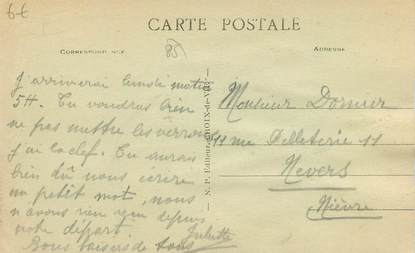 6€
CARTE POSTALE
CORRESPONDANCE
85
ADRESSE
J'arriverai lundi matin
5H. Tu voudras bien
ne pas mettre les verrous
j'ai la clef. Tu aurais
bien dû nous écrire
un petit mot, nous
n'avons rien reçu depuis
notre départ.
Bons baisers de tous
Juliette
N. P. Editeur CROIX-de-VIE
Monsieur
11 rue Pelleterie 11
Nevers
Nièvre